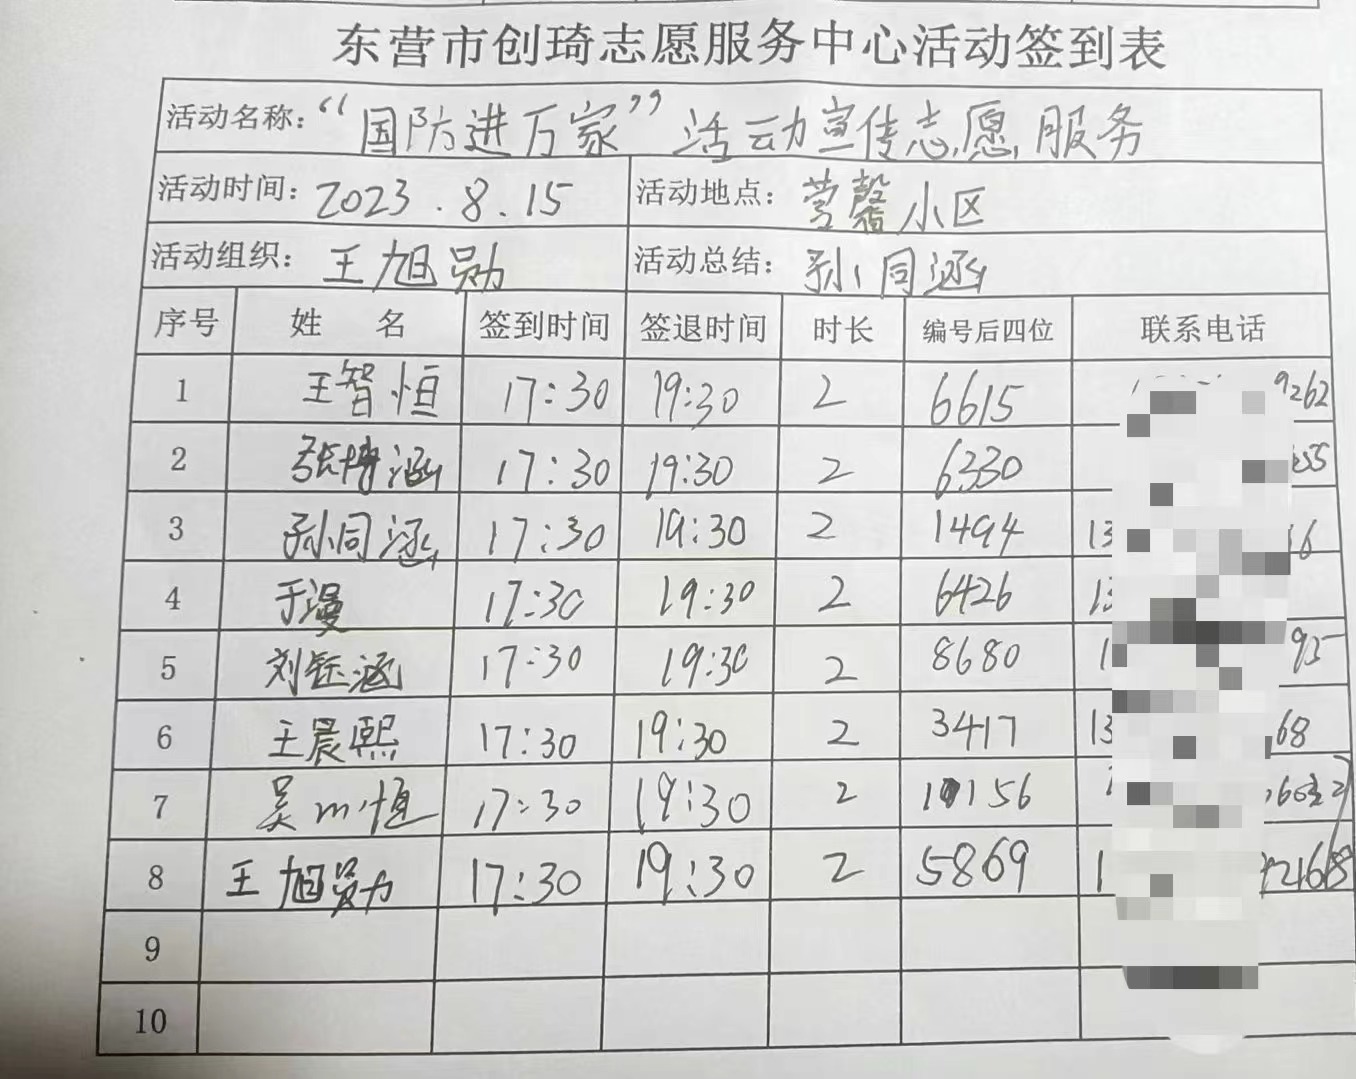 东营市创琦志愿服务中心活动签到表
活动名称：“国防进万家”活动宣传志愿服务
活动时间：2023.8.15 活动地点：营馨小区
活动组织：王旭勋 活动总结：孙同涵
序号 姓名 签到时间 签退时间 时长 编号后四位 联系电话
1 王智恒 17:30 19:30 2 6615 9262
2 张博涵 17:30 19:30 2 6330
3 孙同涵 17:30 19:30 2 1494 13
4 于漫 17:30 19:30 2 6426 13
5 刘钰涵 17:30 19:30 2 8680 1 95
6 王晨熙 17:30 19:30 2 3417 13 68
7 吴 恒 17:30 19:30 2 156
8 王旭勋 17:30 19:30 2 5869 1
9
10